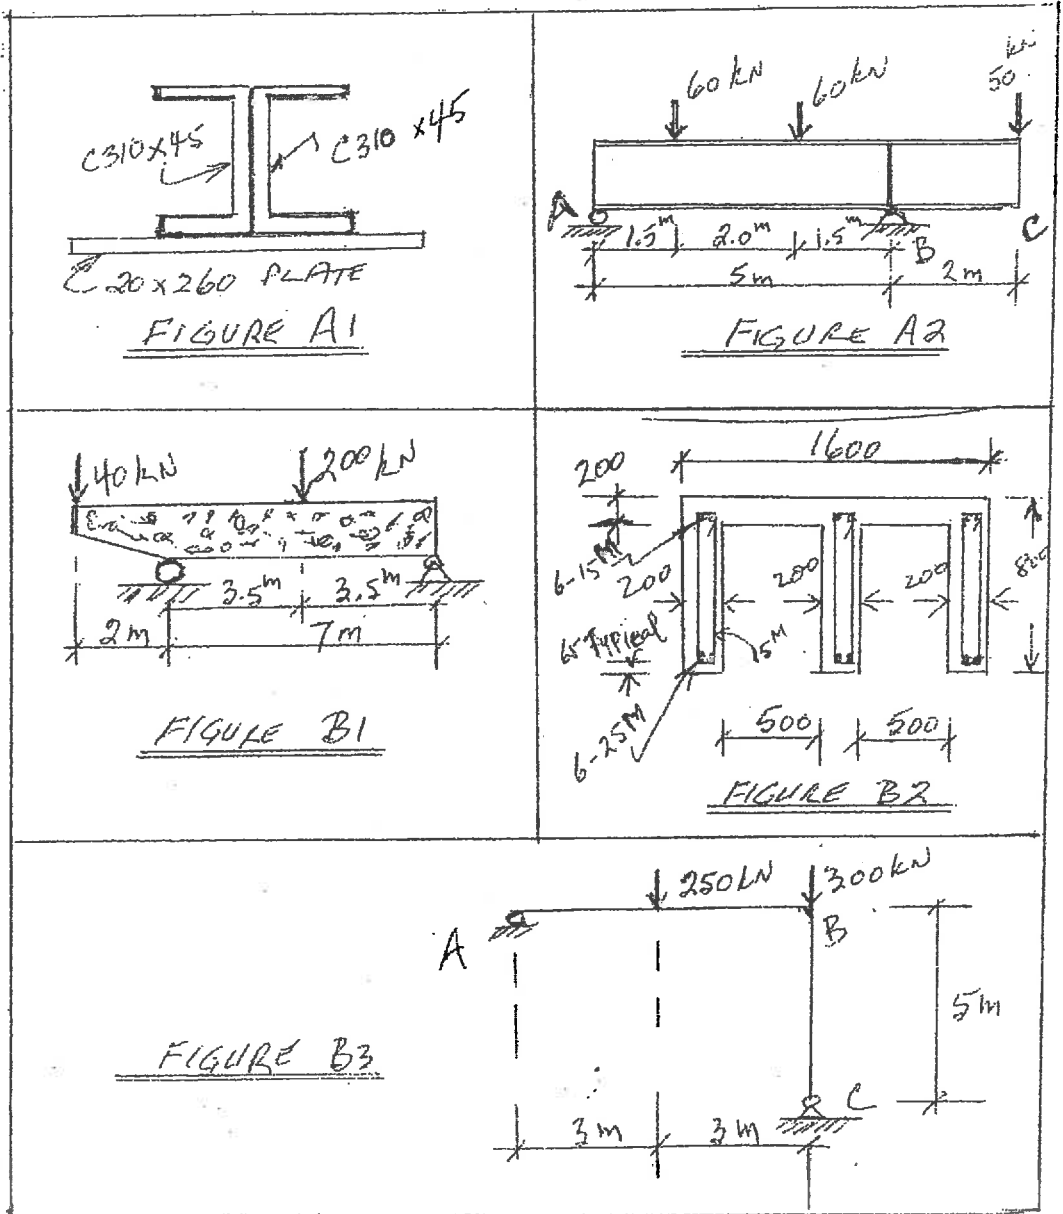 C310×45
C310 ×45
C 20×260 PLATE
FIGURE A1
60kN
60kN
50 kN
A
B
C
1.5m
2.0m
1.5m
5m
2m
FIGURE A2
40kN
200kN
3.5m
3.5m
2m
7m
FIGURE B1
1600
200
6-15M
200
200
200
800
65 Typical
15M
6-25M
500
500
FIGURE B2
250kN
300kN
A
B
5m
C
3m
3m
FIGURE B3